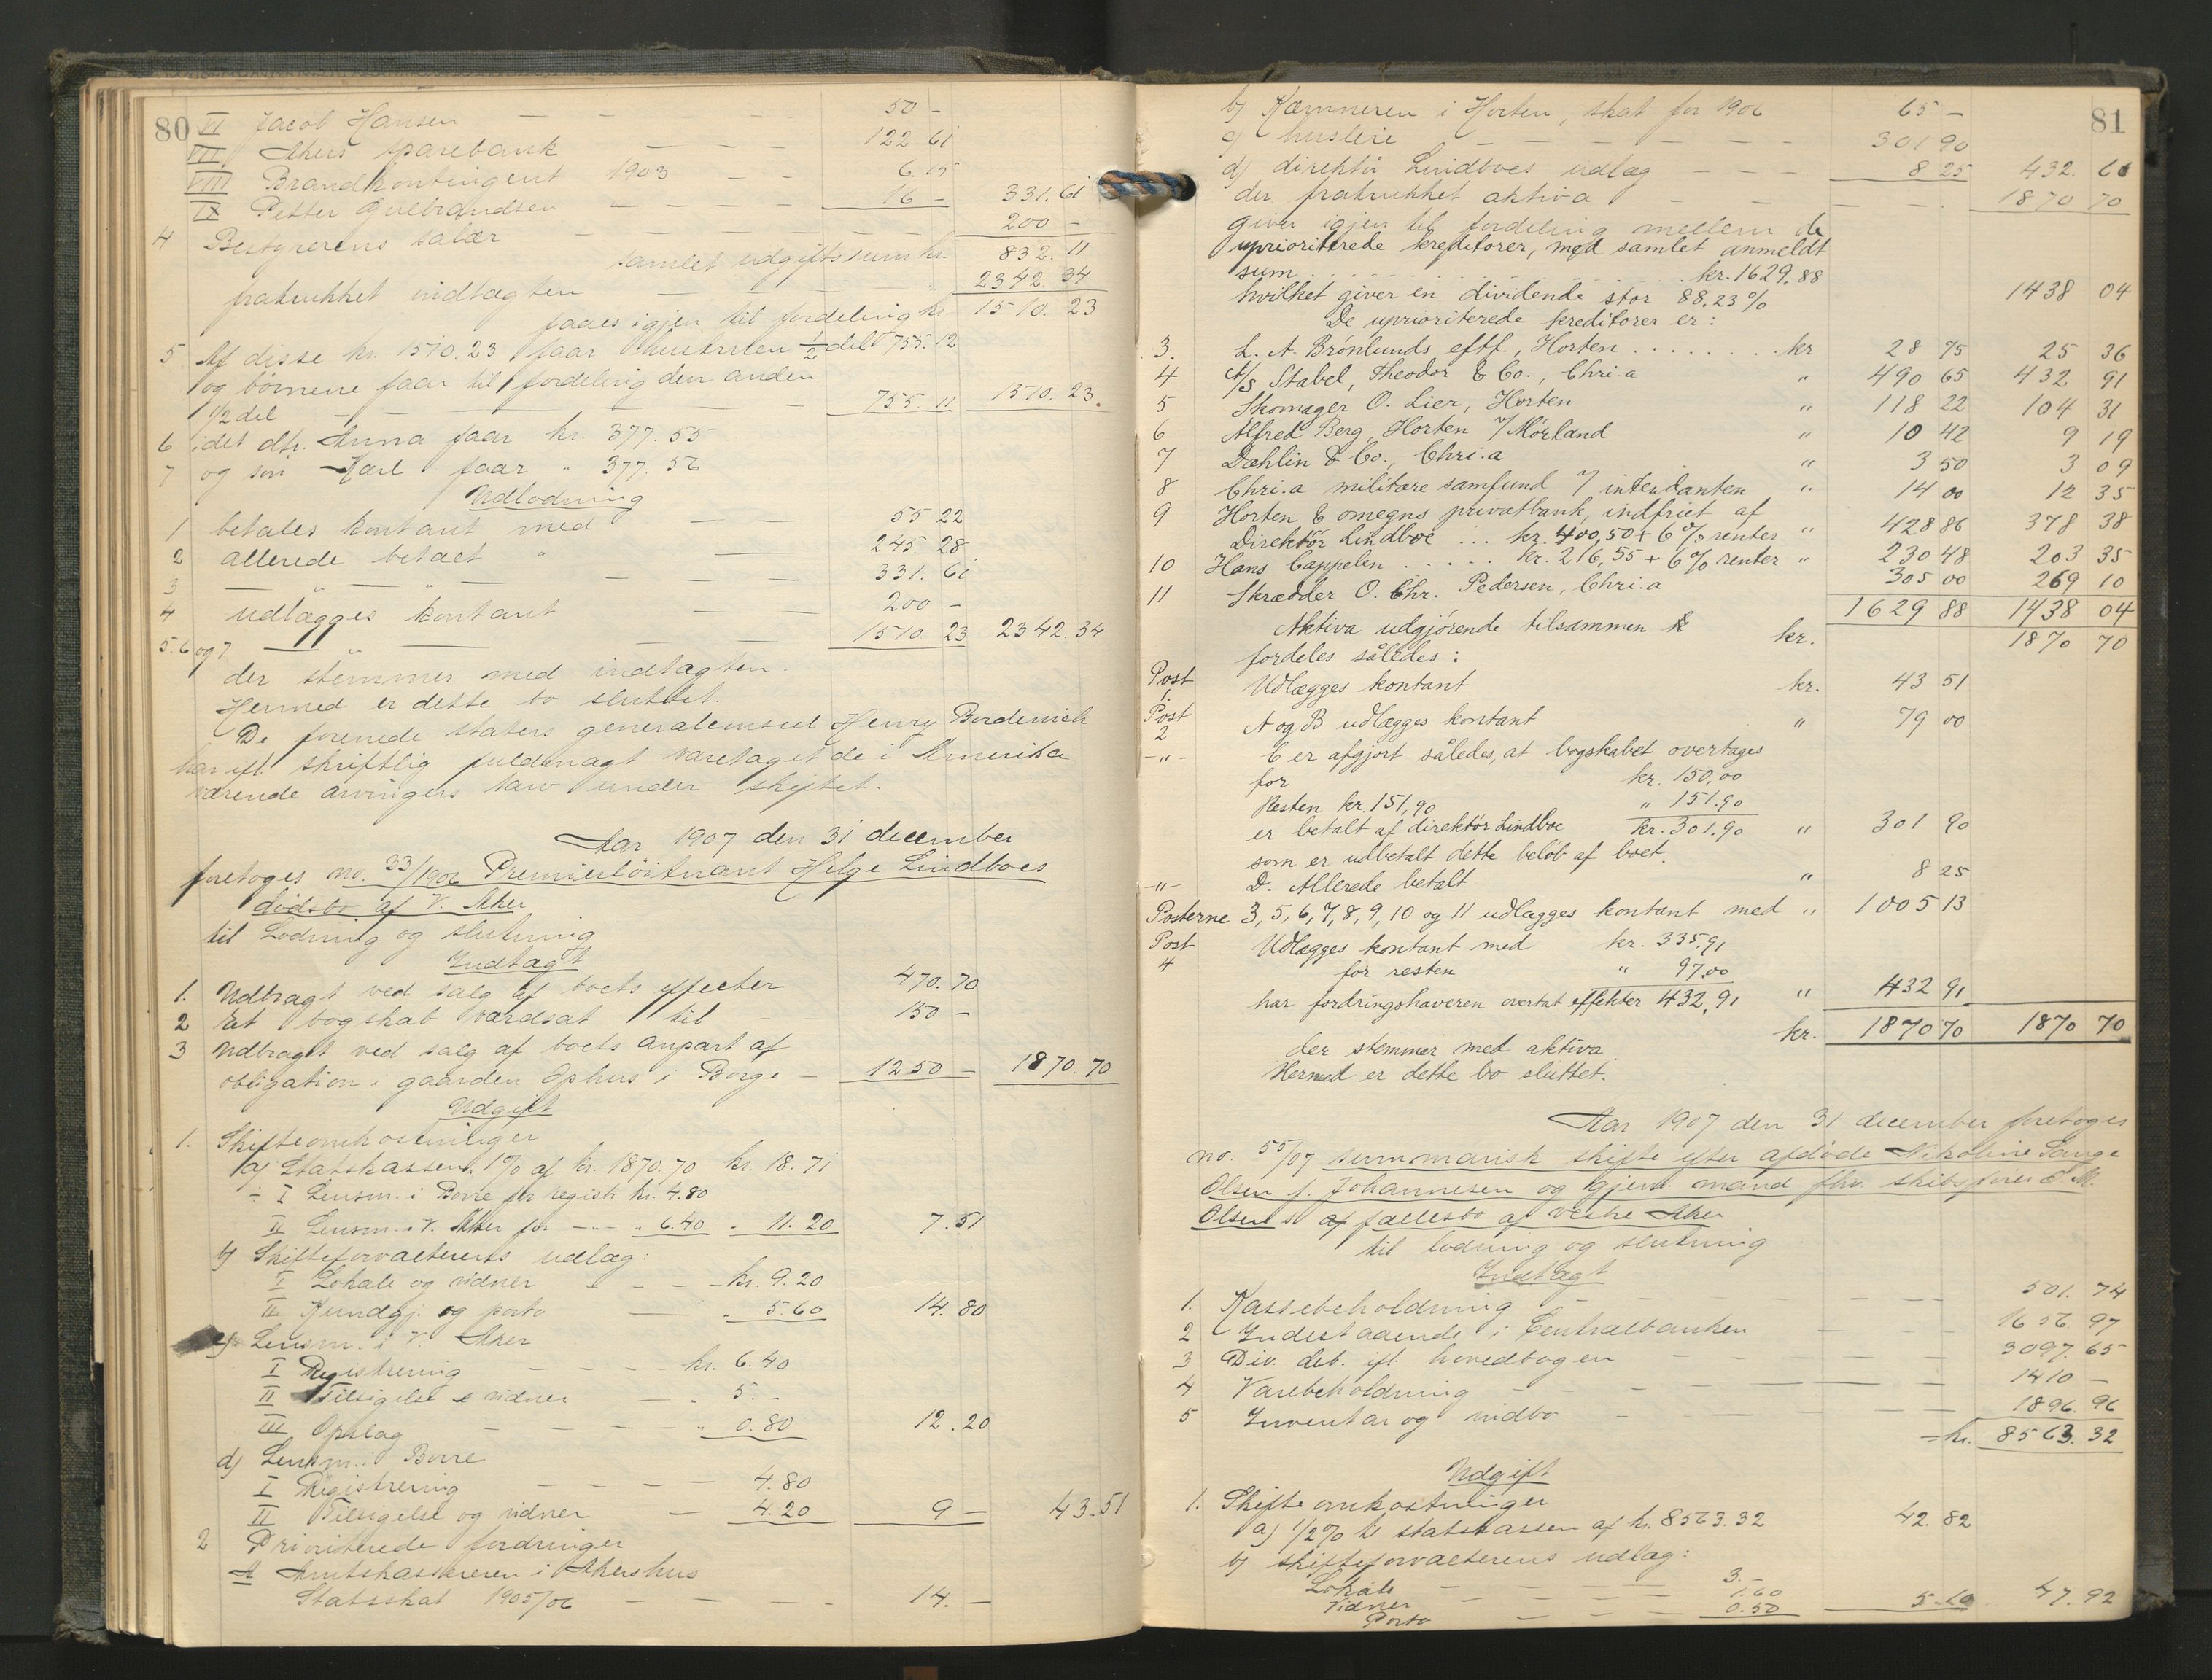 80
VI Jacob Hansen — — — 50 –
VII Akers sparebank — — — 122 61
VIII Brandkontingent 1903 — — 6.15
IX Petter Gulbrandsen — — — — 16 – 331.61
4 Bestyrerens salær — — — — 200 –
samlet udgiftssum kr. 832.11
fratrukket indtægten — — — 2342.34
faaes igjen til fordeling kr. 1510.23
5 Af disse kr. 1510.23 faar hustruen 1/2 del 755.12
og børnene faar til fordeling den anden
1/2 del — — — 755.11 1510.23.
6 idet dtr. Anna faar kr. 377.55
7 og søn Karl faar " 377.56
Udlodning
1 betales kontant med — — 55 22
2 allerede betalt " — 245.28
3 — " — " — — — 331.61
4 udlægges kontant — — 200 –
5.6 og 7 — " — — 1510 23 2342.34
der stemmer med indtægten.
Hermed er dette bo sluttet.
De forenede staters generalconsul Henry Bordewich
har ifl. skriftlig fuldmagt varetaget de i Amerika
værende arvingers tarv under skiftet.
Aar 1907 den 31 december
foretoges no. 33/1906 Premierløitnant Helge Lindboes
dødsbo af V. Aker
til Lodning og slutning
Indtægt
1. Udbragt ved salg af boets effecter 470.70
2 Et bogskab værdsat til — 150 –
3 Udbragt ved salg af boets anpart af
obligation i gaarden Ophus i Borge — 1250 – 1870.70
Udgift
1. Skifteomkostninger
a) Statskassen 1% af kr. 1870.70 kr. 18.71
÷ I Lensm. i Borre for registr. kr. 4.80
II Lensm. i V. Aker for —"— " 6.40 " 11.20 7.51
b) Skifteforvalterens udlæg:
I Lokale og vidner — — — kr. 9.20
II Kundgj. og porto — " 5.60 14.80
c) Lensm. i V. Aker
I Registrering — — — kr. 6.40
II Tilsigelse & vidner — " 5. –
III Opslag — — — — " 0.80 12.20
d) Lensm. i Borre
I Registrering — — — 4.80
II Tilsigelse og vidner — 4.20 9 – 43.51
2 Prioriterede fordringer
A Amtskassereren i Akershus
Statsskat 1905/06 — — — — 14. –
81
b) Kæmneren i Horten, skat for 1906 65 –
c) husleie — — — — — — 301 90
d) direktør Lindboes udlæg — — — 8 25 432. 66
der fratrukket aktiva — — — — 1870 70
giver igjen til fordeling mellem de
uprioriterede kreditorer, med samlet anmeldt
sum . . . . . . . . . kr. 1629,88
hvilket giver en dividende stor 88.23% 1438 04
De uprioriterede kreditorer er:
3. L. A. Brønlunds eftf., Horten . . . . . . . kr 28 75 25 36
4 A/S Stabel, Theodor & Co., Chri.a " 490 65 432 91
5 Skomager O. Lier, Horten " 118 22 104 31
6 Alfred Berg, Horten v/ Mørland " 10 42 9 19
7 Dahlin & Co., Chri.a " 3 50 3 09
8 Chri.a militære samfund v/ intendanten " 14 00 12 35
9 Horten & omegns privatbank, indfriet af
Direktør Lindboe ... kr. 400,50 + 6% renter " 428 86 378 38
10 Hans Cappelen . . . . . kr. 216,55 + 6% renter " 230 48 203 35
11 Skrædder O. Chr. Pedersen, Chri.a 305 00 269 10
1629 88 1438 04
Aktiva udgjørende tilsammen kr. 1870 70
fordeles således:
Post 1. Udlægges kontant kr. 43 51
Post 2 A og B udlægges kontant " 79 00
—"— C er afgjort således, at bogskabet overtages
for kr. 150,00
Resten kr. 151,90 " 151.90
er betalt af direktør Lindboe kr. 301.90 " 301 90
som er udbetalt dette beløb af boet.
—"— D. Allerede betalt " 8 25
Posterne 3, 5, 6, 7, 8, 9, 10 og 11 udlægges kontant med " 1005 13
Post 4 Udlægges kontant med kr. 335,91
for resten " 97,00
har fordringshaveren overtat effekter 432,91 " 432 91
kr. 1870 70 1870 70
der stemmer med aktiva.
Hermed er dette bo sluttet.
Aar 1907 den 31 december foretoges
no. 55/07 summarisk skifte efter afdøde Nikoline Lange
Olsen f. Johannesen og gjenl. mand fhv. skibsfører O. M.
Olsens fællesbo af vestre Aker
til lodning og slutning
Indtægt
1. Kassebeholdning — — — — — 501. 74
2 Indestaaende i Centralbanken — — 1656. 97
3 Div. deb. ifl. hovedbogen — — — — 3097. 65
4 Varebeholdning — — — — — 1410 –
5 Inventar og indbo — — — — 1896. 96
= kr. 8563. 32
Udgift
1. Skifteomkostninger
a) 1/2% til statskassen af kr. 8563.32 42. 82
b) skifteforvalterens udlæg:
Lokale — — — — 3. –
Vidner — — — — 1.60
Porto — — — 0.50 5.10 47.92